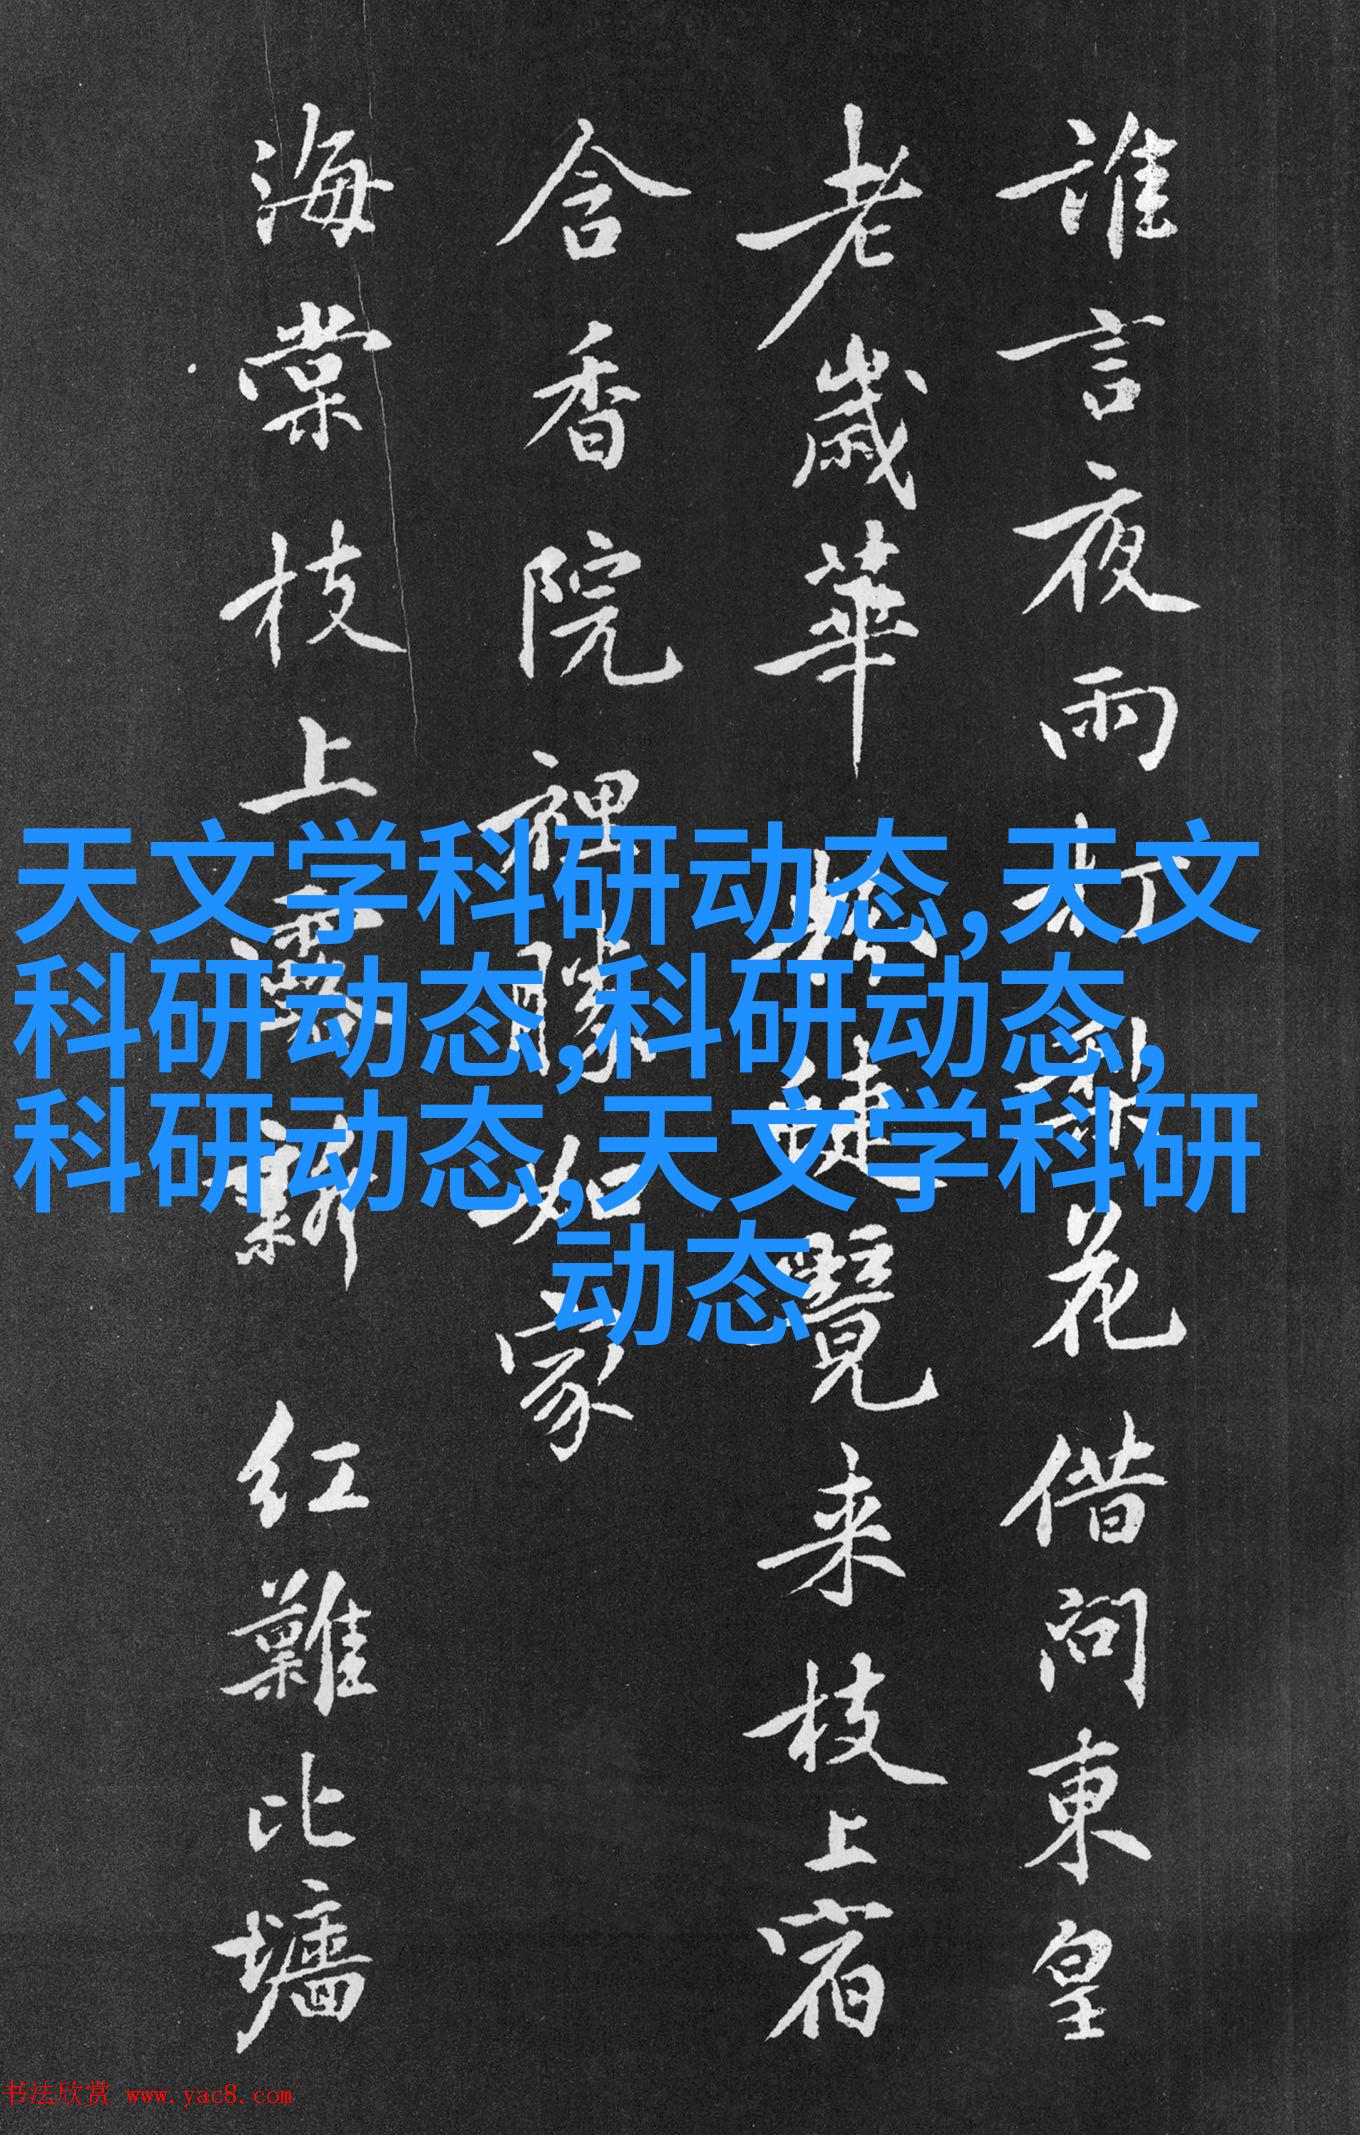 誰言夜雨梨花借問東皇
老歲華覽来枝上宿
含香院裡勝如家
海棠枝上露新红難比墻
天文学科研动态,天文
科研动态,科研动态,
科研动态,天文学科研
动态
书法欣赏 www.yac8.com